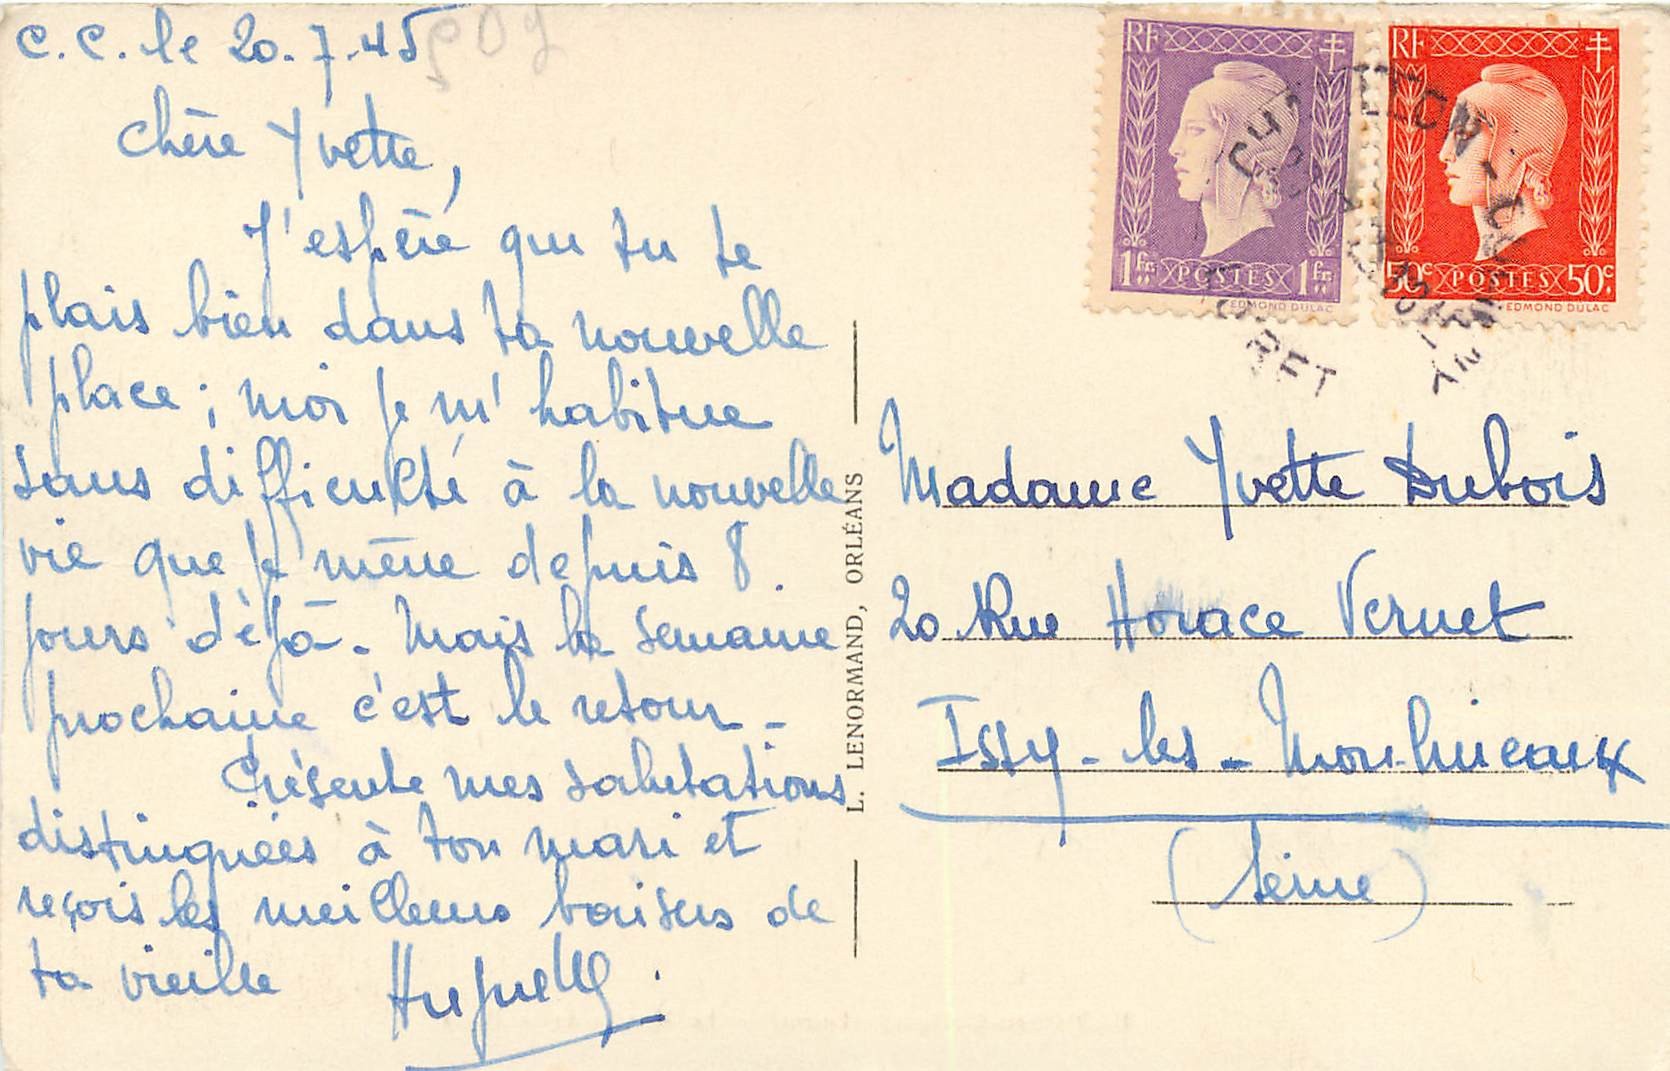 C.C. le 20.7.45
Chère Yvette,
J'espère que tu te
plais bien dans ta nouvelle
place ; moi je m'habitue
sans difficulté à la nouvelle
vie que je mène depuis 8
jours déjà. Mais la semaine
prochaine c'est le retour_
Présente mes salutations
distinguées à ton mari et
reçois les meilleurs baisers de
ta vieille Huguette.
L. LENORMAND, ORLÉANS
RF
1fr. POSTES 1fr.
EDMOND DULAC
RF
50c POSTES 50c
EDMOND DULAC
CHATILLON-COLIGNY
LOIRET
Madame Yvette Dubois
20 Rue Horace Vernet
Issy-les-Moulineaux
(Seine)